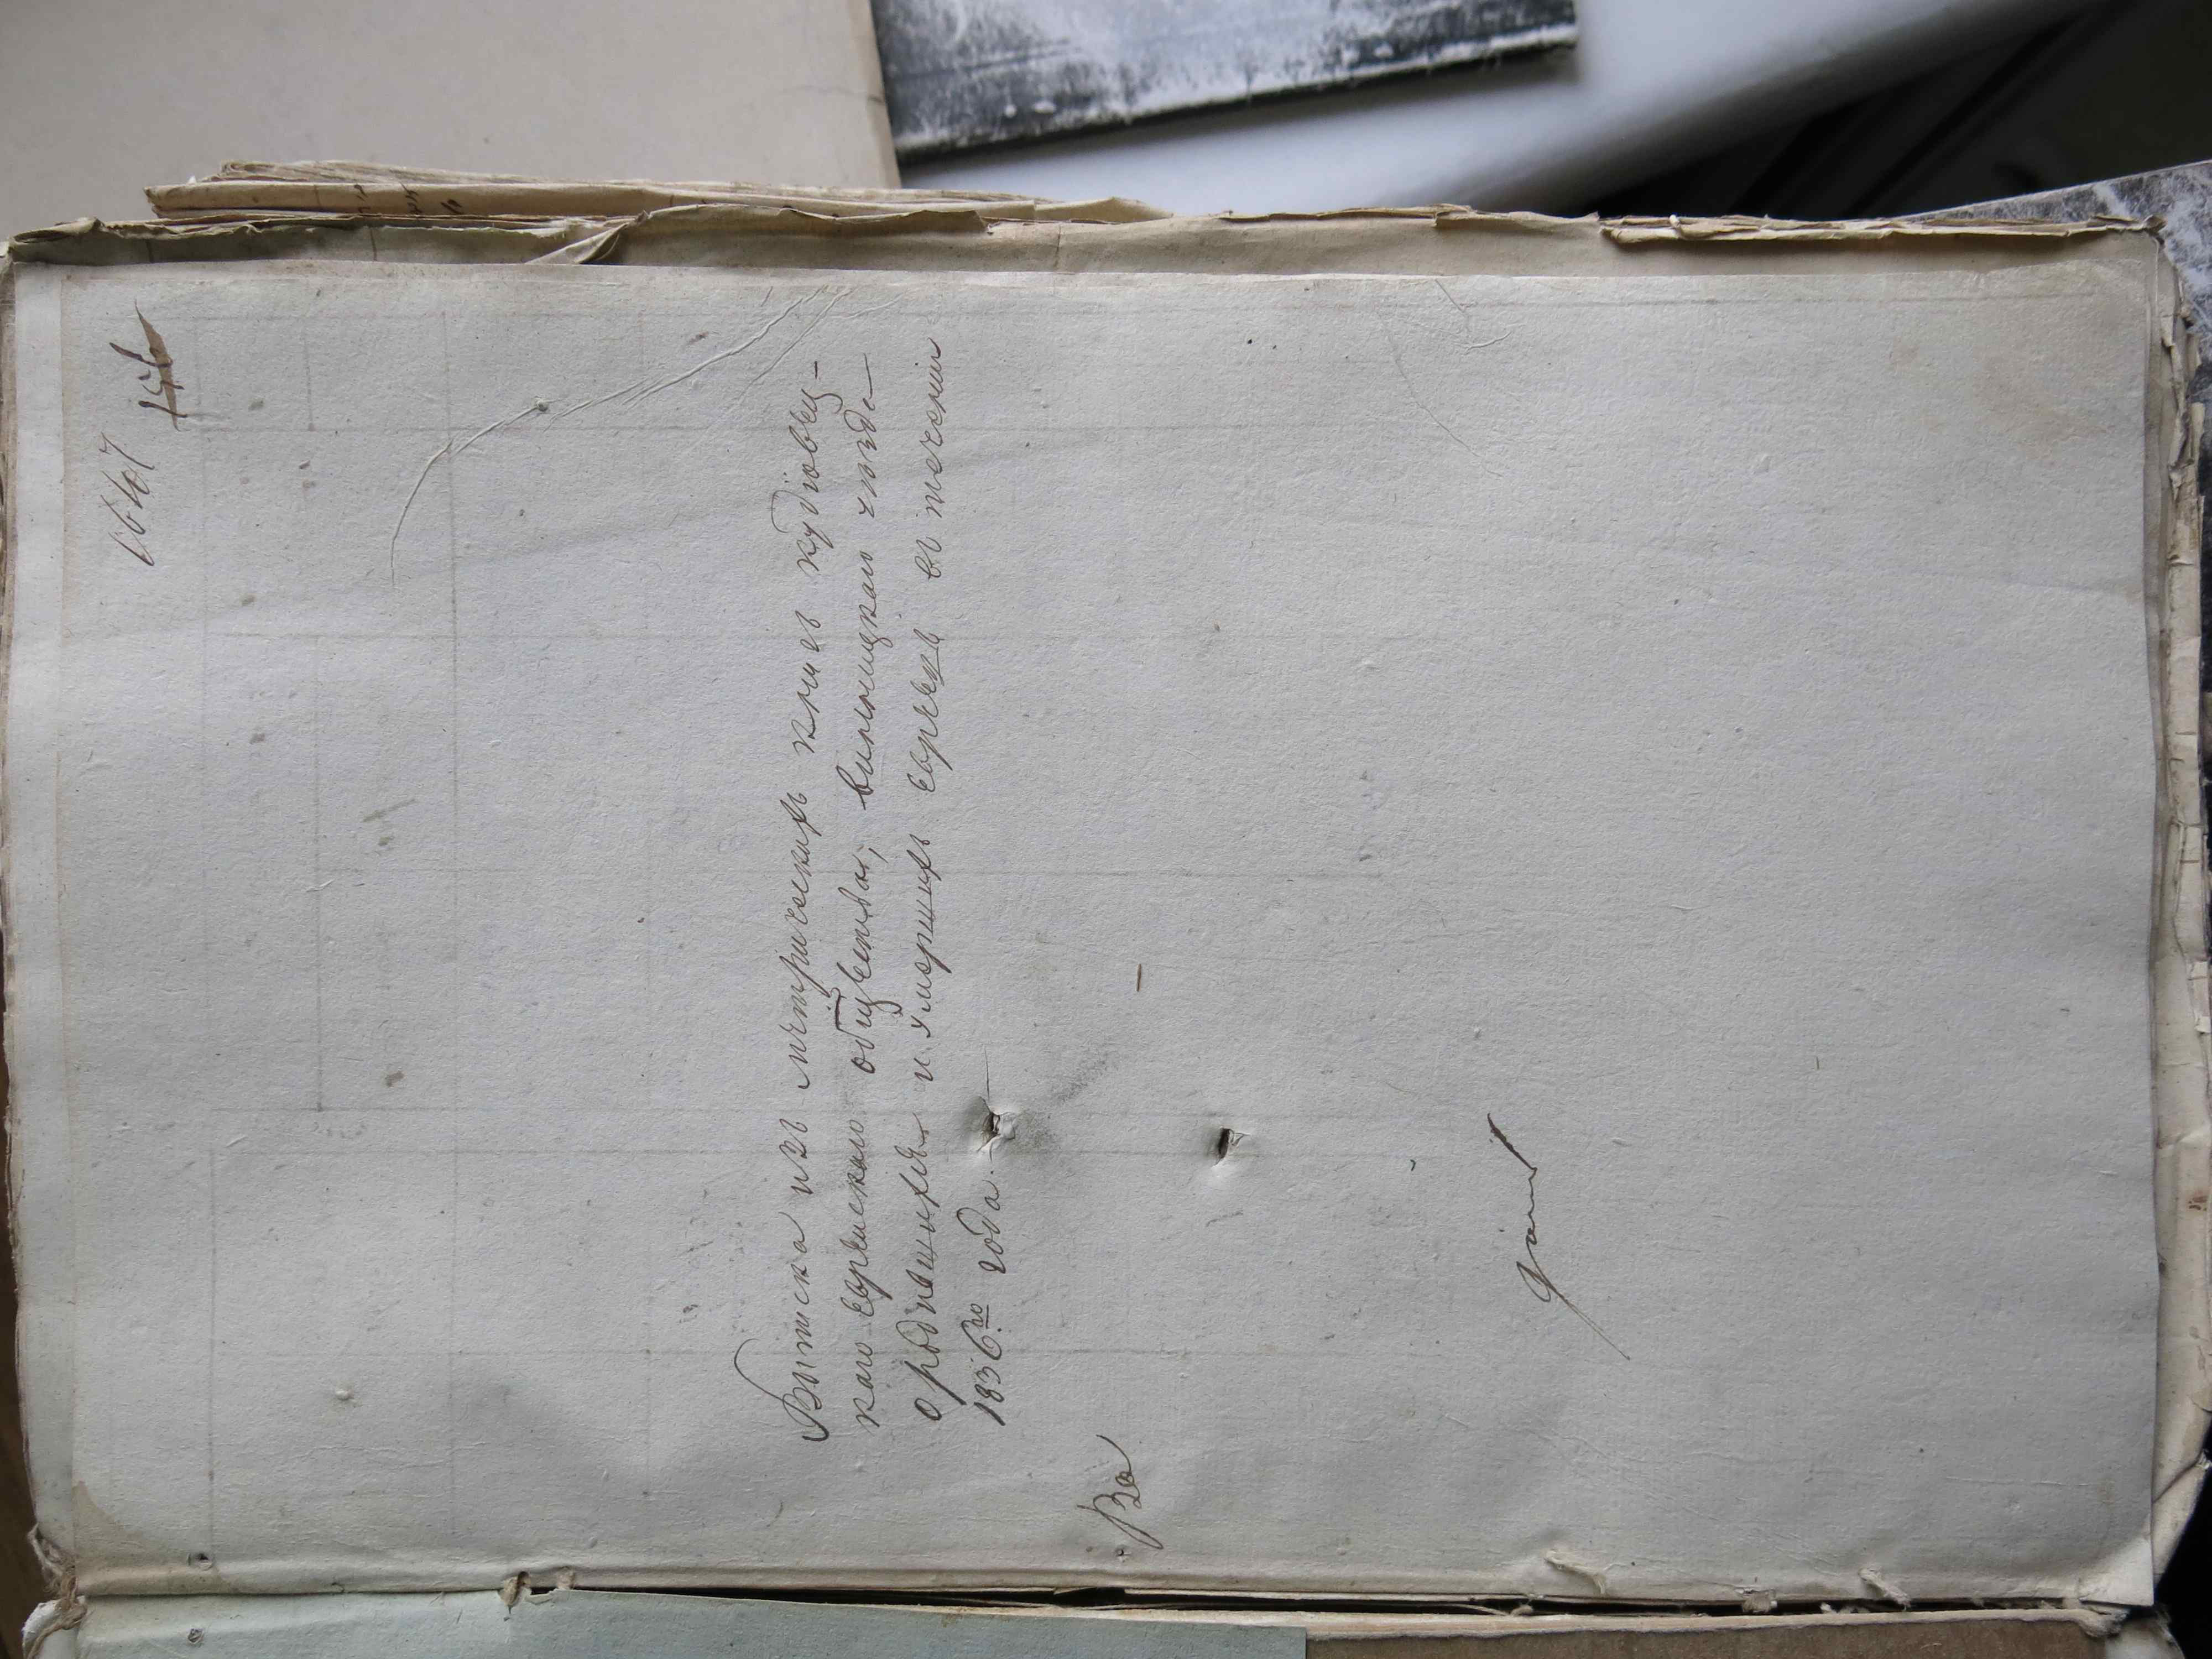 156
Выписка изъ метрическихъ книгъ кудіовец-
каго Еврейскаго общества, винницкаго уѣзда
о родившихся и умершихъ евреевъ въ теченіи
1836го года.